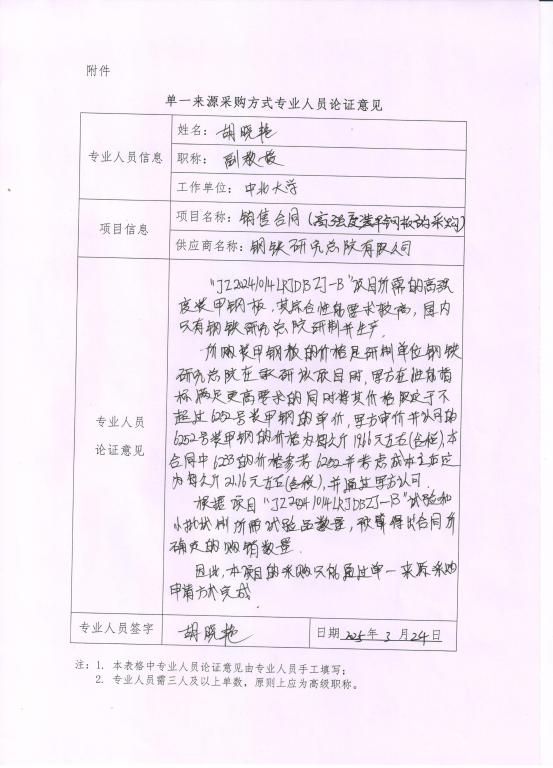 附件
单一来源采购方式专业人员论证意见
专业人员信息
姓名：胡晓艳
职称：副教授
工作单位：中北大学
项目信息
项目名称：销售合同（高强度装甲钢板的采购）
供应商名称：钢铁研究总院有限公司
专业人员
论证意见
"JZ20241014LRJDBZJ-B"项目所需的高强
度装甲钢板，其综合性能要求较高，国内
只有钢铁研究总院研制并生产。
所购装甲钢板的价格是研制单位钢铁
研究总院在承研该项目时，军方在性能指
标满足更高要求的同时将其价格限定于不
超过6252号装甲钢的单价，军方审价并认可的
6252号装甲钢的价格为每公斤19.66元左右(含税)，本
合同中6233的价格参考6252并考虑成本定
为每公斤21.16元左右(含税)，并通过军方认可。
根据项目"JZ20241014LRJDBZJ-B"试验和
小批试制所需试验品数量，核算得出合同所
确定的购销数量。
因此，本项目的采购只能通过单一来源采购
申请方式完成。
专业人员签字
胡晓艳
日期 2025年3月24日
注：1. 本表格中专业人员论证意见由专业人员手工填写；
2. 专业人员需三人及以上单数，原则上应为高级职称。